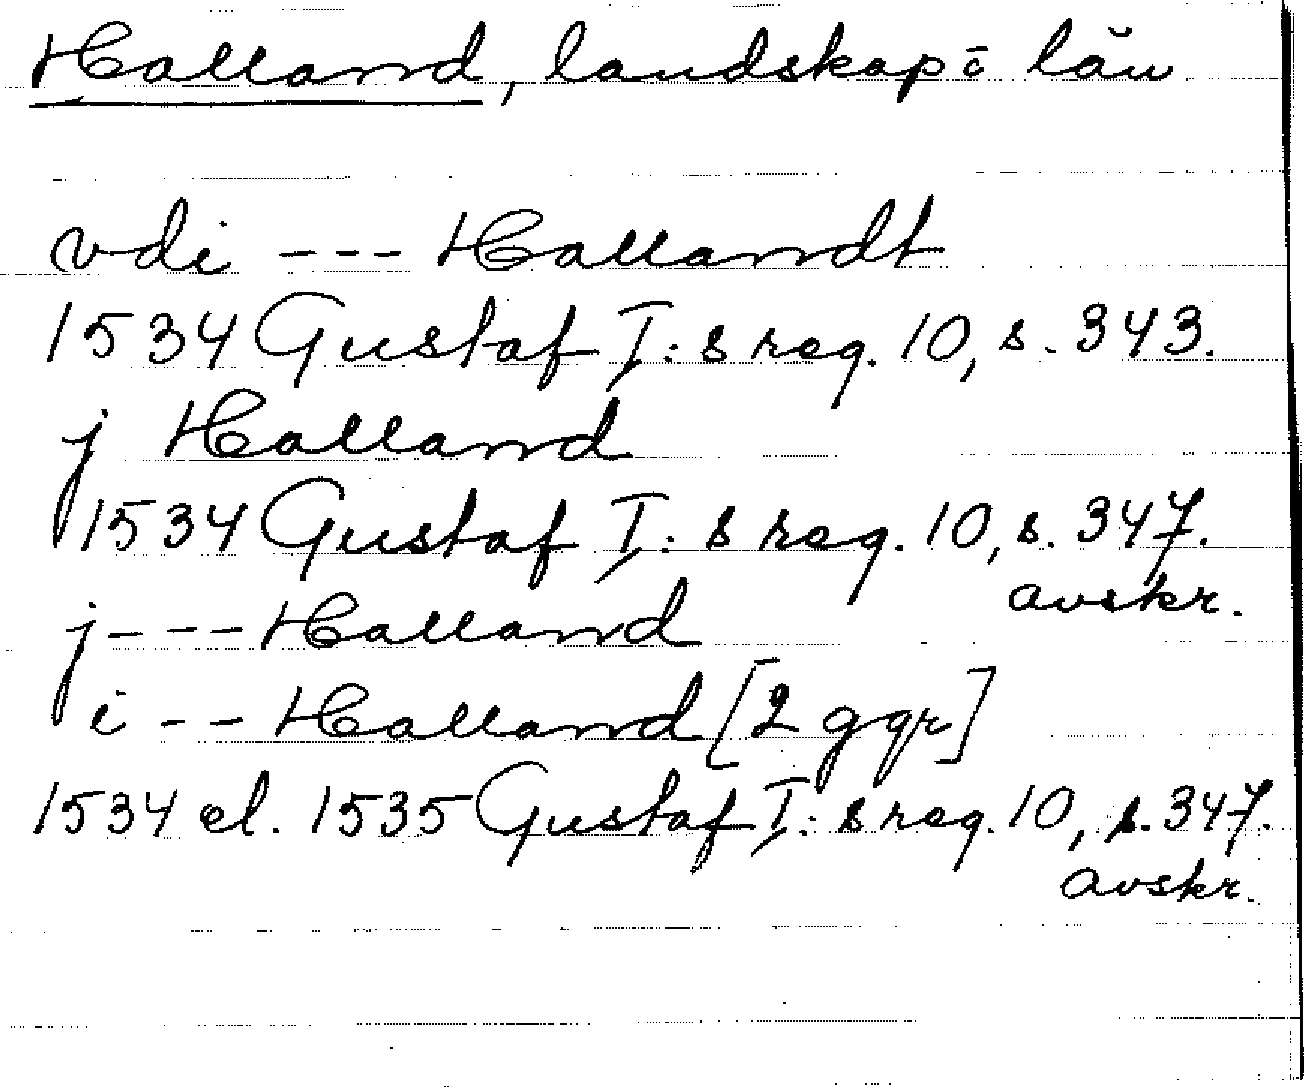 Halland, landskap o. län
vdi --- Hallandt
1534 Gustaf I:s reg. 10, s. 343.
j Halland
1534 Gustaf I:s reg. 10, s. 347.
avskr.
j --- Halland
i -- Halland [2 ggr]
1534 el. 1535 Gustaf I:s reg. 10, s. 347.
avskr.